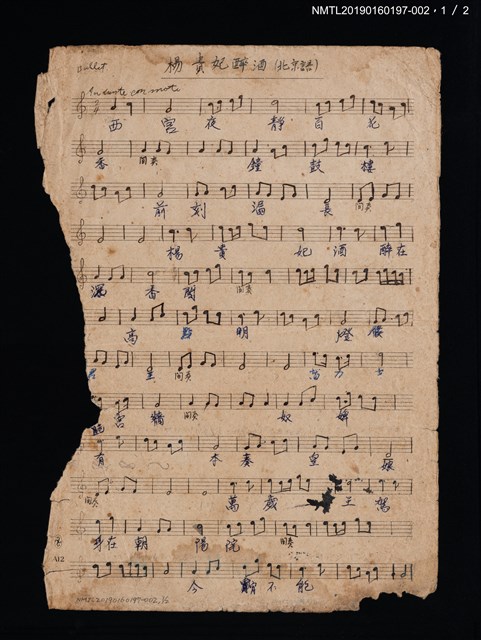 NMTL20190160197-002，1 / 2
Ballet
楊貴妃醉酒(北京語)
Andante con moto
西 宮 夜 靜 百 花
香 間奏 鐘 鼓 樓
前 刻 漏 長 間奏
楊 貴 妃 酒 醉在
深 香閣 間奏
高 點 明 燈
君 王 間奏 力 士
宮 牆 間奏 奴 婢
有 本奏 皇 娘
間奏 萬 歲 王 駕
身在 朝 陽 院 間奏
A12
今 宵不 能
NMTL20190160197-002, 1/2